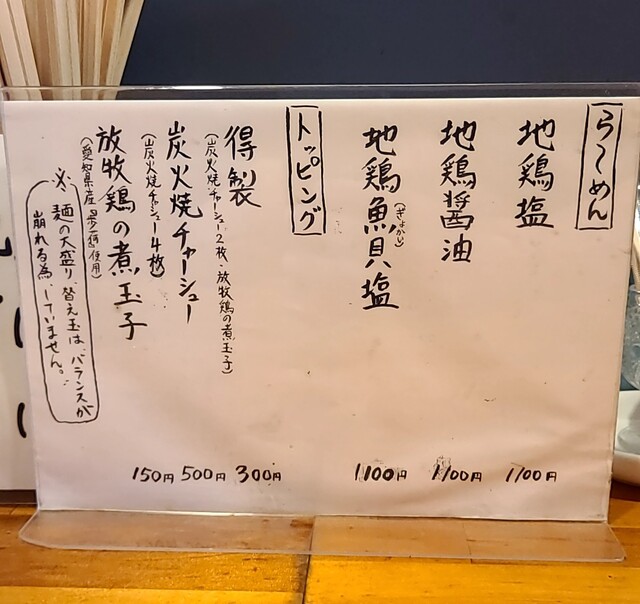 らーめん
地鶏塩 1100円
地鶏醤油 1100円
地鶏魚貝塩 1100円
(ぎょかい)
トッピング
得製 300円
(炭火焼チャーシュー2枚、放牧鶏の煮玉子)
炭火焼チャーシュー 500円
(炭火焼チャーシュー4枚)
放牧鶏の煮玉子 150円
(愛知県産 使用)
※麺の大盛り、替え玉は、バランスが
崩れる為、していません。